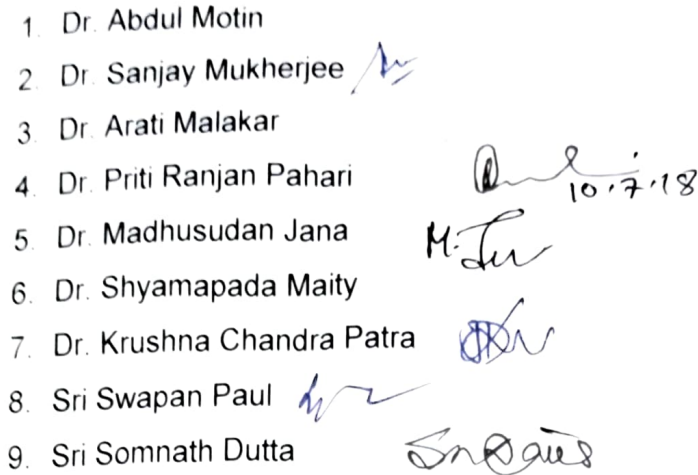 1. Dr. Abdul Motin
2. Dr. Sanjay Mukherjee
3. Dr. Arati Malakar
4. Dr. Priti Ranjan Pahari 10.7.18
5. Dr. Madhusudan Jana M.
6. Dr. Shyamapada Maity
7. Dr. Krushna Chandra Patra
8. Sri Swapan Paul
9. Sri Somnath Dutta